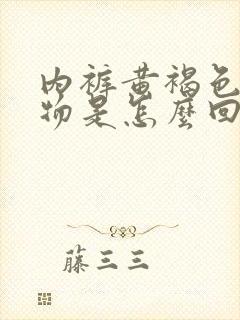 内裤黄褐色
物是怎麼回
藤三三